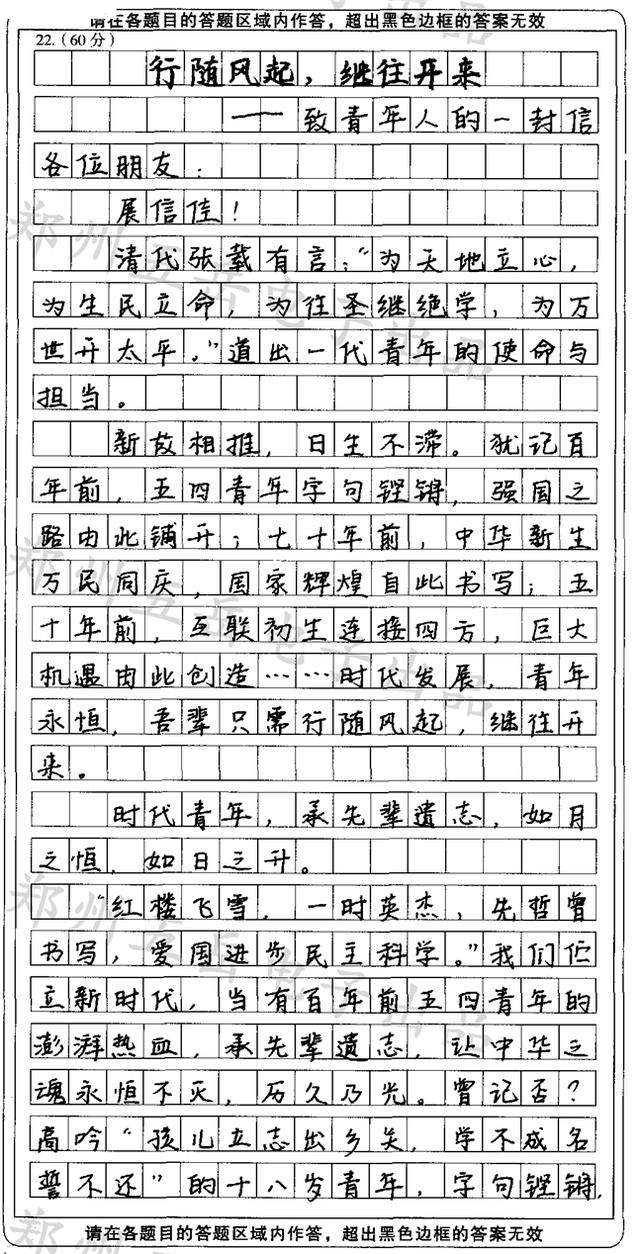 请在各题目的答题区域内作答，超出黑色边框的答案无效
22.（60分）
行随风起，继往开来
——致青年人的一封信
各位朋友：
展信佳！
清代张载有言：“为天地立心，
为生民立命，为往圣继绝学，为万
世开太平。”道出一代青年的使命与
担当。
新故相推，日生不滞。犹记百
年前，五四青年字句铿锵，强国之
路由此铺开；七十年前，中华新生
万民同庆，国家辉煌自此书写；五
十年前，互联初生连接四方，巨大
机遇由此创造……时代发展，青年
永恒，吾辈只需行随风起，继往开
来。
时代青年，承先辈遗志，如月
之恒，如日之升。
“红楼飞雪，一时英杰，先哲曾
书写，爱国进步民主科学。”我们伫
立新时代，当有百年前五四青年的
澎湃热血，承先辈遗志，让中华之
魂永恒不灭，历久乃光。曾记否？
高吟“孩儿立志出乡关，学不成名
誓不还”的十八岁青年，字句铿锵，
请在各题目的答题区域内作答，超出黑色边框的答案无效
郑州五岳电子出品
郑州五岳电子出品
郑州五岳电子出品